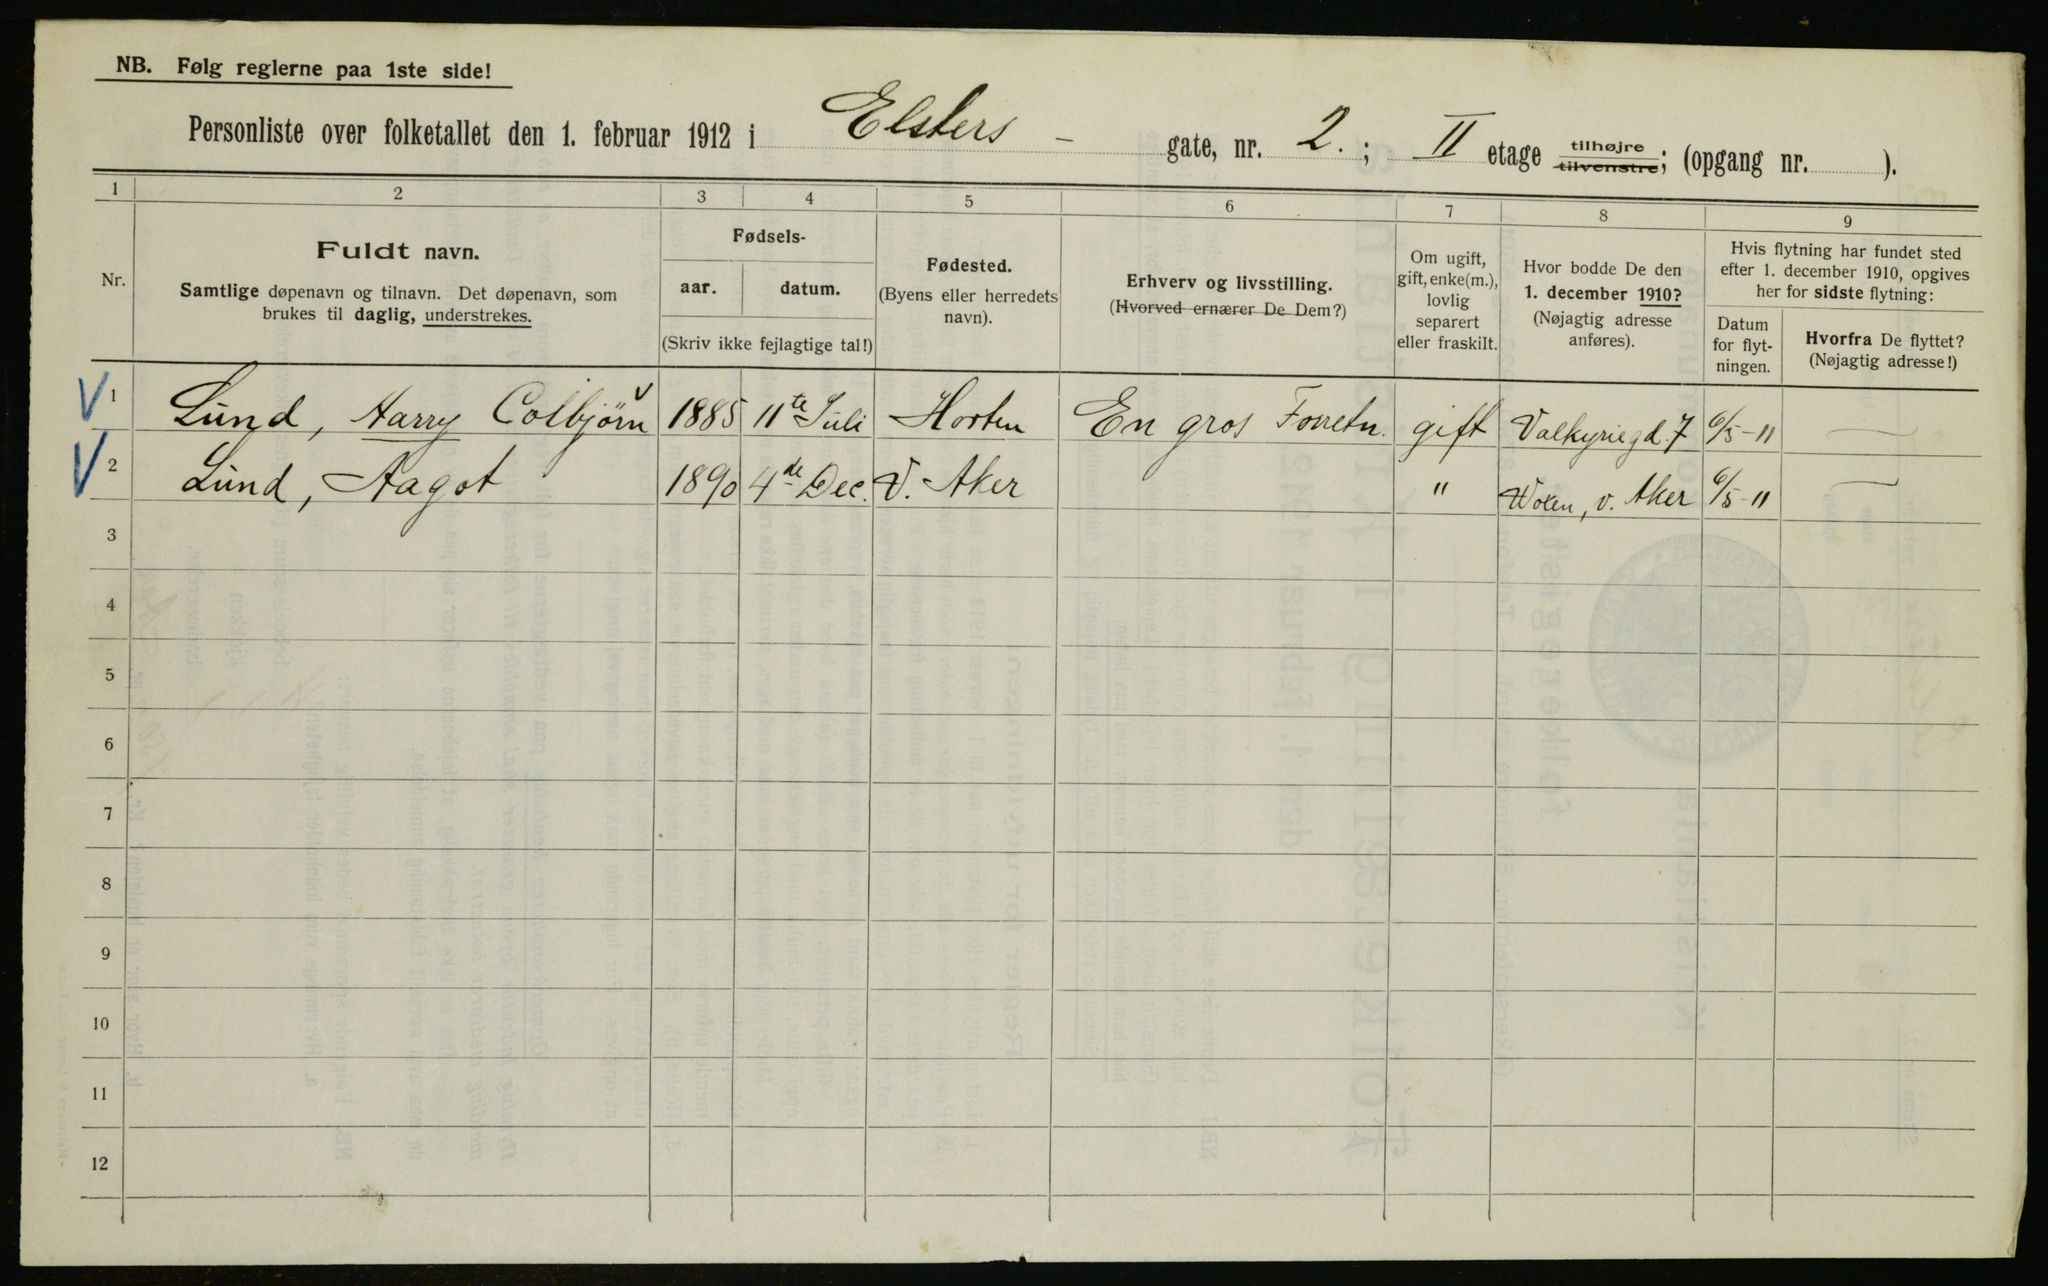 NB. Følg reglerne paa 1ste side!
Personliste over folketallet den 1. februar 1912 i Elsters - gate, nr. 2.; II etage tilhøjre tilvenstre; (opgang nr. ).
1 2 3 4 5 6 7 8 9
Nr.
Fuldt navn.
Samtlige døpenavn og tilnavn. Det døpenavn, som
brukes til daglig, understrekes.
Fødsels-
aar. datum.
(Skriv ikke fejlagtige tal!)
Fødested.
(Byens eller herredets
navn).
Erhverv og livsstilling.
(Hvorved ernærer De Dem?)
Om ugift,
gift, enke(m.),
lovlig
separert
eller fraskilt.
Hvor bodde De den
1. december 1910?
(Nøjagtig adresse
anføres).
Hvis flytning har fundet sted
efter 1. december 1910, opgives
her for sidste flytning:
Datum
for flyt-
ningen.
Hvorfra De flyttet?
(Nøjagtig adresse!)
V 1 Lund, Harry Colbjørn 1885 11te Juli Horten En gros Forretn. gift Valkyriegd. 7 6/5-11 —
V 2 Lund, Aagot 1890 4de Dec. V. Aker " Woxen, v. Aker 6/5-11 —
3
4
5
6
7
8
9
10
11
12